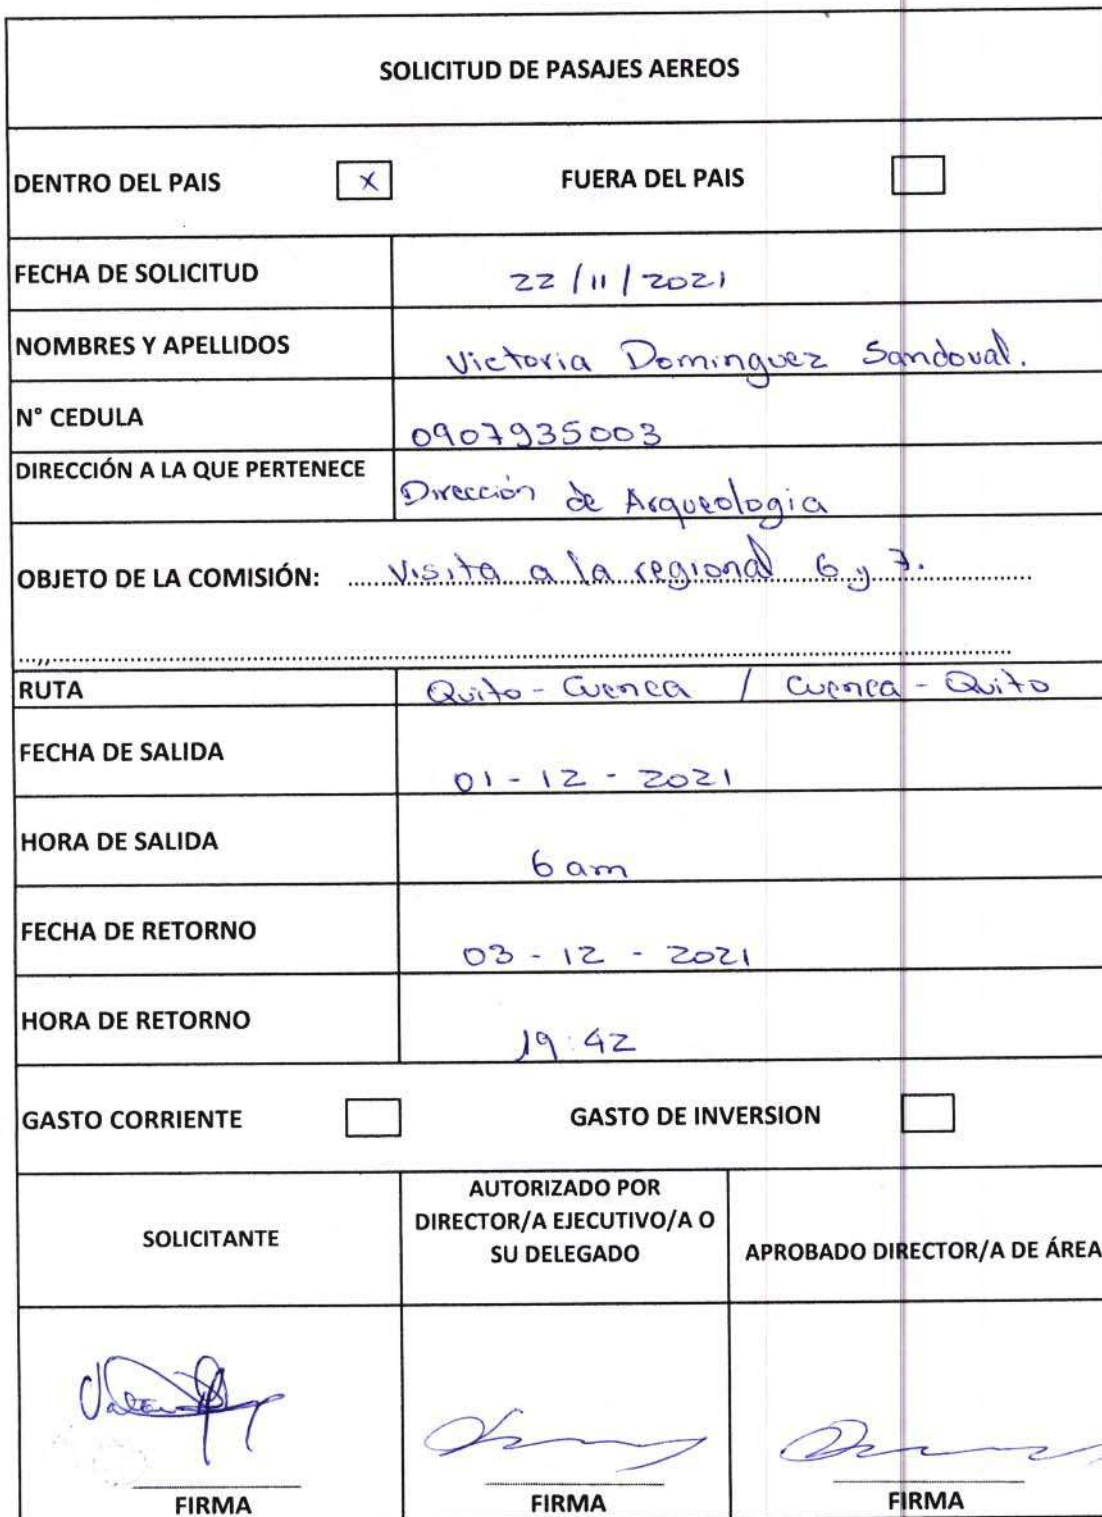 SOLICITUD DE PASAJES AEREOS
DENTRO DEL PAIS x FUERA DEL PAIS
FECHA DE SOLICITUD 22/11/2021
NOMBRES Y APELLIDOS Victoria Dominguez Sandoval.
N° CEDULA 0907935003
DIRECCIÓN A LA QUE PERTENECE Dirección de Arqueologia
OBJETO DE LA COMISIÓN: Visita a la regional 6 y 7.
RUTA Quito - Cuenca / Cuenca - Quito
FECHA DE SALIDA 01 - 12 - 2021
HORA DE SALIDA 6 am
FECHA DE RETORNO 03 - 12 - 2021
HORA DE RETORNO 19:42
GASTO CORRIENTE GASTO DE INVERSION
SOLICITANTE
AUTORIZADO POR
DIRECTOR/A EJECUTIVO/A O
SU DELEGADO
APROBADO DIRECTOR/A DE ÁREA
FIRMA FIRMA FIRMA